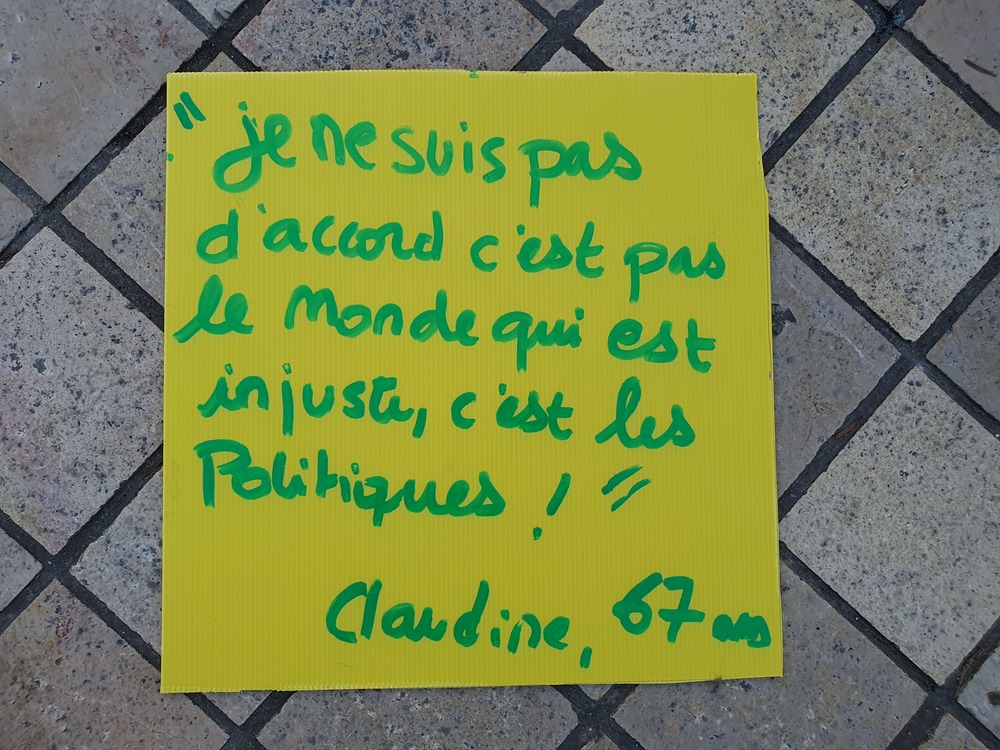 "je ne suis pas
d'accord c'est pas
le Monde qui est
injuste, c'est les
Politiques ! "
Claudine, 67 ans